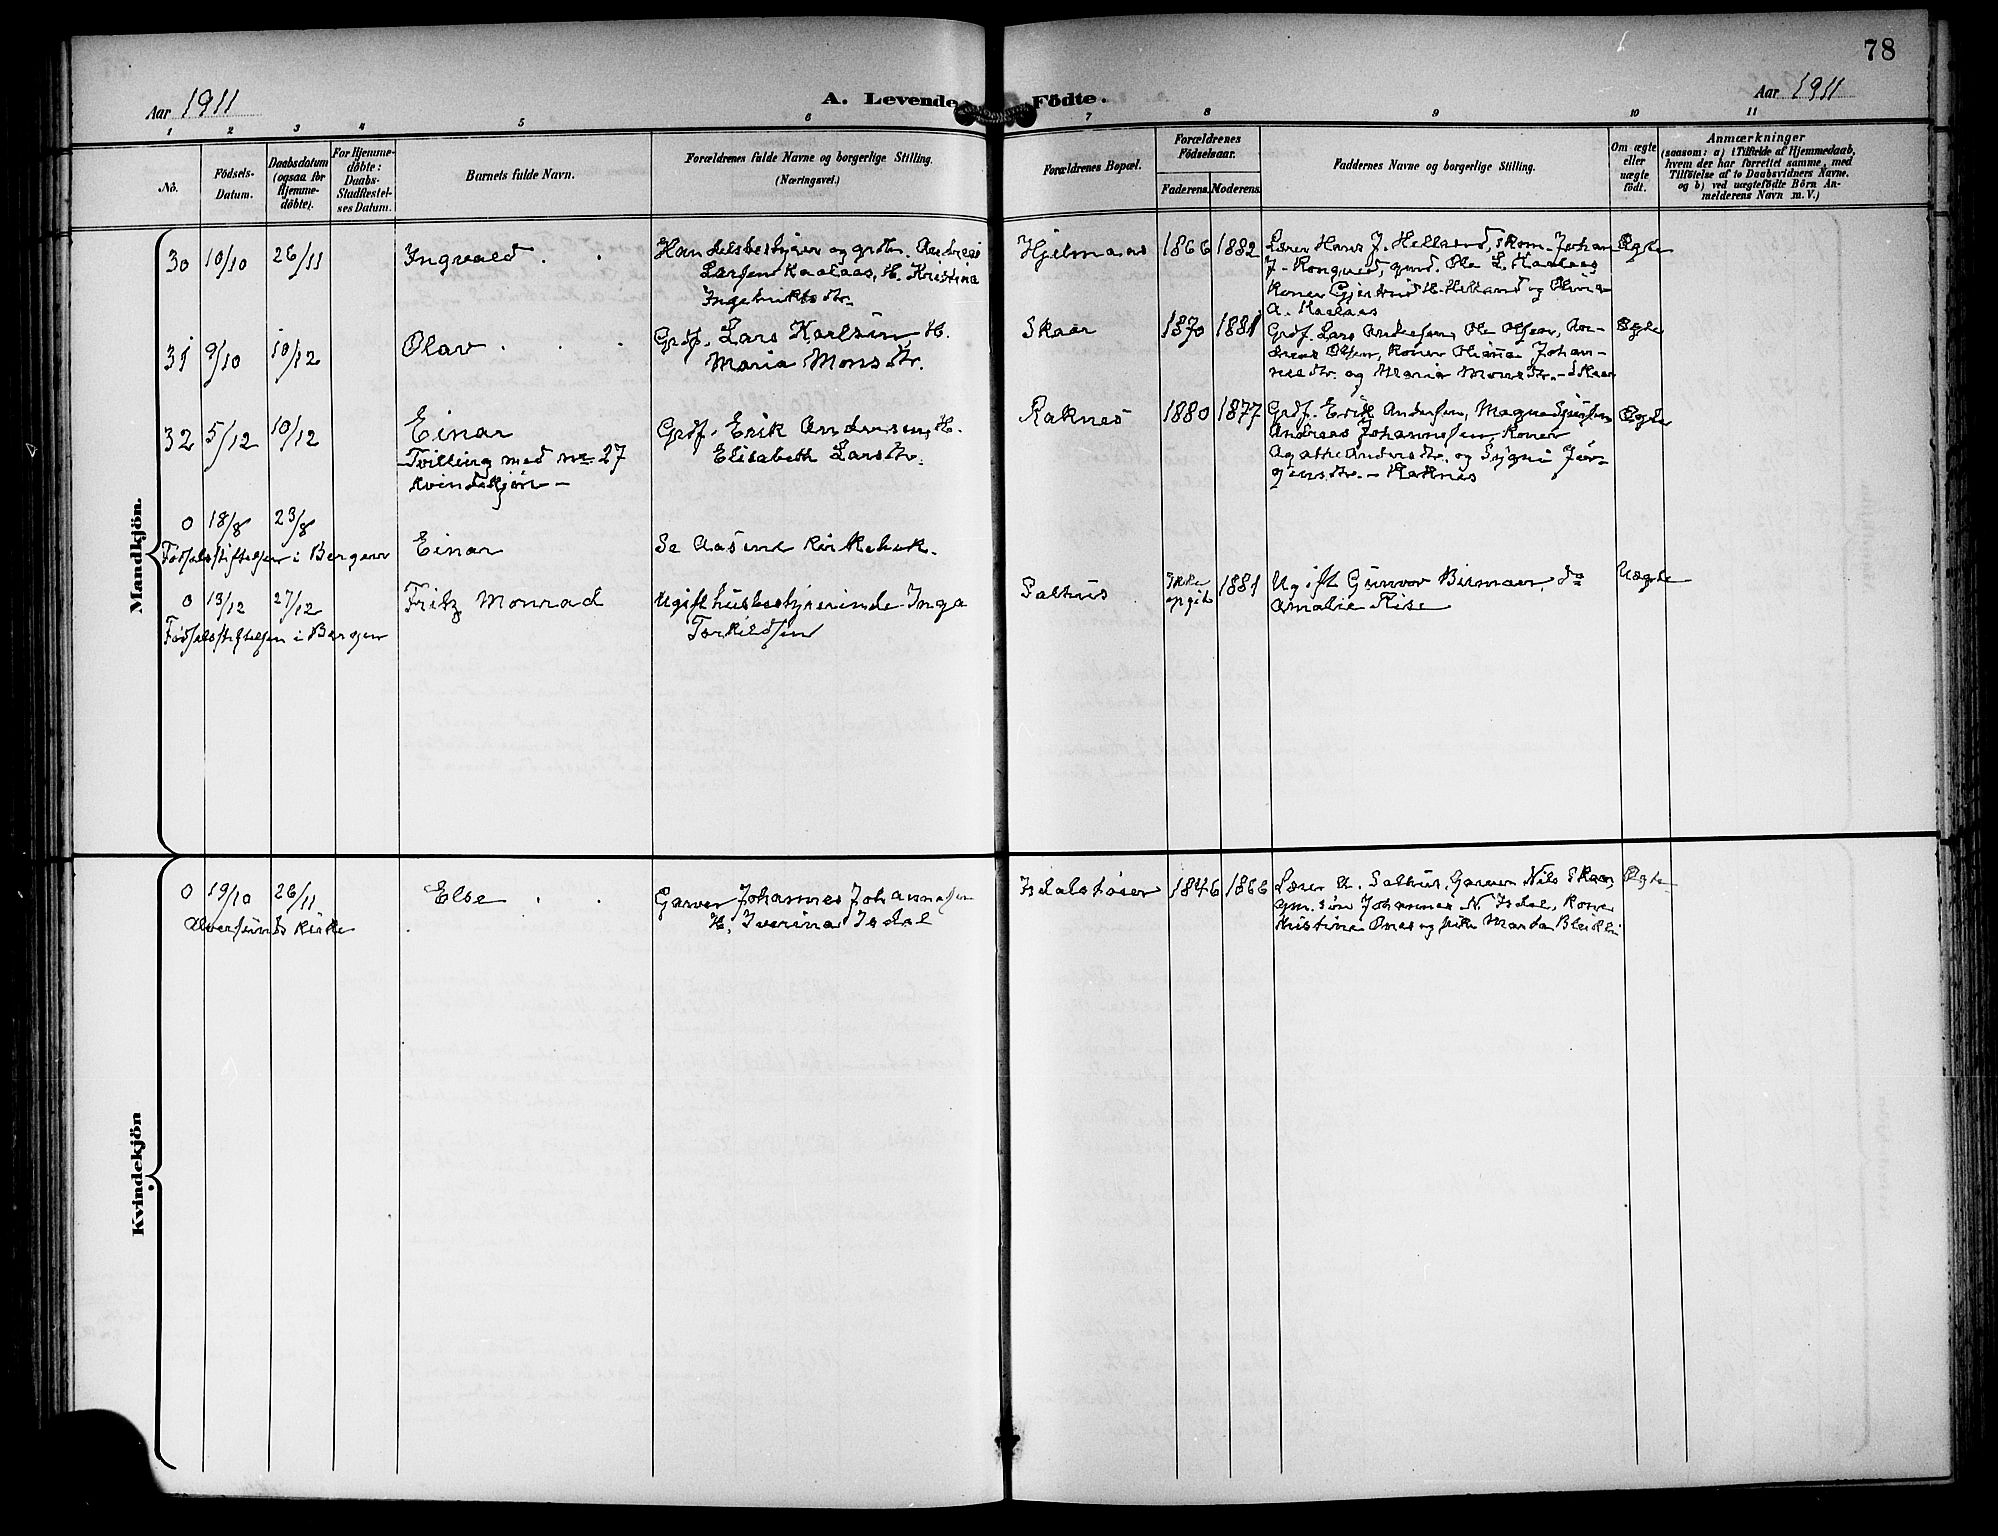 78
Aar 1911
A. Levende Födte.
Aar 1911
1 2 3 4 5 6 7 8 9 10 11
No.
Födsels-
Datum.
Daabsdatum
(ogsaa for
Hjemme-
döbte).
For Hjemme-
döbte:
Daabs-
Stadfæstel-
ses Datum.
Barnets fulde Navn.
Forældrenes fulde Navne og borgerlige Stilling.
(Næringsvei.)
Forældrenes Bopæl.
Forældrenes
Födselsaar.
Faderens. Moderens.
Faddernes Navne og borgerlige Stilling.
Om ægte
eller
uægte
födt.
Anmærkninger
(saasom: a) i Tilfælde af Hjemmedaab,
hvem der har forrettet samme, med
Tilföielse af to Daabsvidners Navne.
og b) ved uægtefödte Börn An-
melderens Navn m. V.)
Mandkjön.
30 10/10 26/11
Ingvald
Handelsbestyrer og grbr.
Larsen Haalaas, H. Kristina
Ingebriktsdtr.
Hjelmaas
1866 1882
Lærer Hans J. Helland, Johan
J. Kongsved, gmd. Ole L. Haalaas
Koner Gjertrud H. Helland og
A. Haalaas
Ægte
31 9/10 10/12
Olav
Grbf. Lars Karlsen, H.
Maria Monsdtr.
Skaar
1870 1881
Grbf. Lars Andersen, Ole Olsen, An-
dreas Olsen, Koner Johan-
nesdtr. og Maria Monsdtr. - Skaar
Ægte
32 5/12 10/12
Einar
Tvilling med no 27
Kvindekjön -
Grbf. Erik Andersen, H.
Elisabeth Larsdtr.
Raknes
1880 1877
Grbf. Erik Andersen, Magne
Andreas Johannessen, Koner
Agathe Andersdtr. og Sygni Jör-
gensdtr. - Raknes
Ægte
0 18/8 23/8
Födselsstiftelsen i Bergen
Einar
Se Aasene Kirkebok.
0 13/12 27/12
Födselsstiftelsen i Bergen
Fritz Monrad
Ugift husbestyrerinde Inga
Torkildsen
Salhus
Ikke
opgit
1881
Ugift Gunvor Birman, do
Amalie Rise
Uægte
Kvindekjön
0 19/10 26/11
Alversunds kirke
Else
Garver Johannes Johannessen
H. Iverina Isdal
Isdalstöen
1846 1866
Lærer A. Salhus, Garver Nils Skaar,
gm. sön Johannes N. Isdal, Kone
Kristine Ones og pike Marta
Ægte